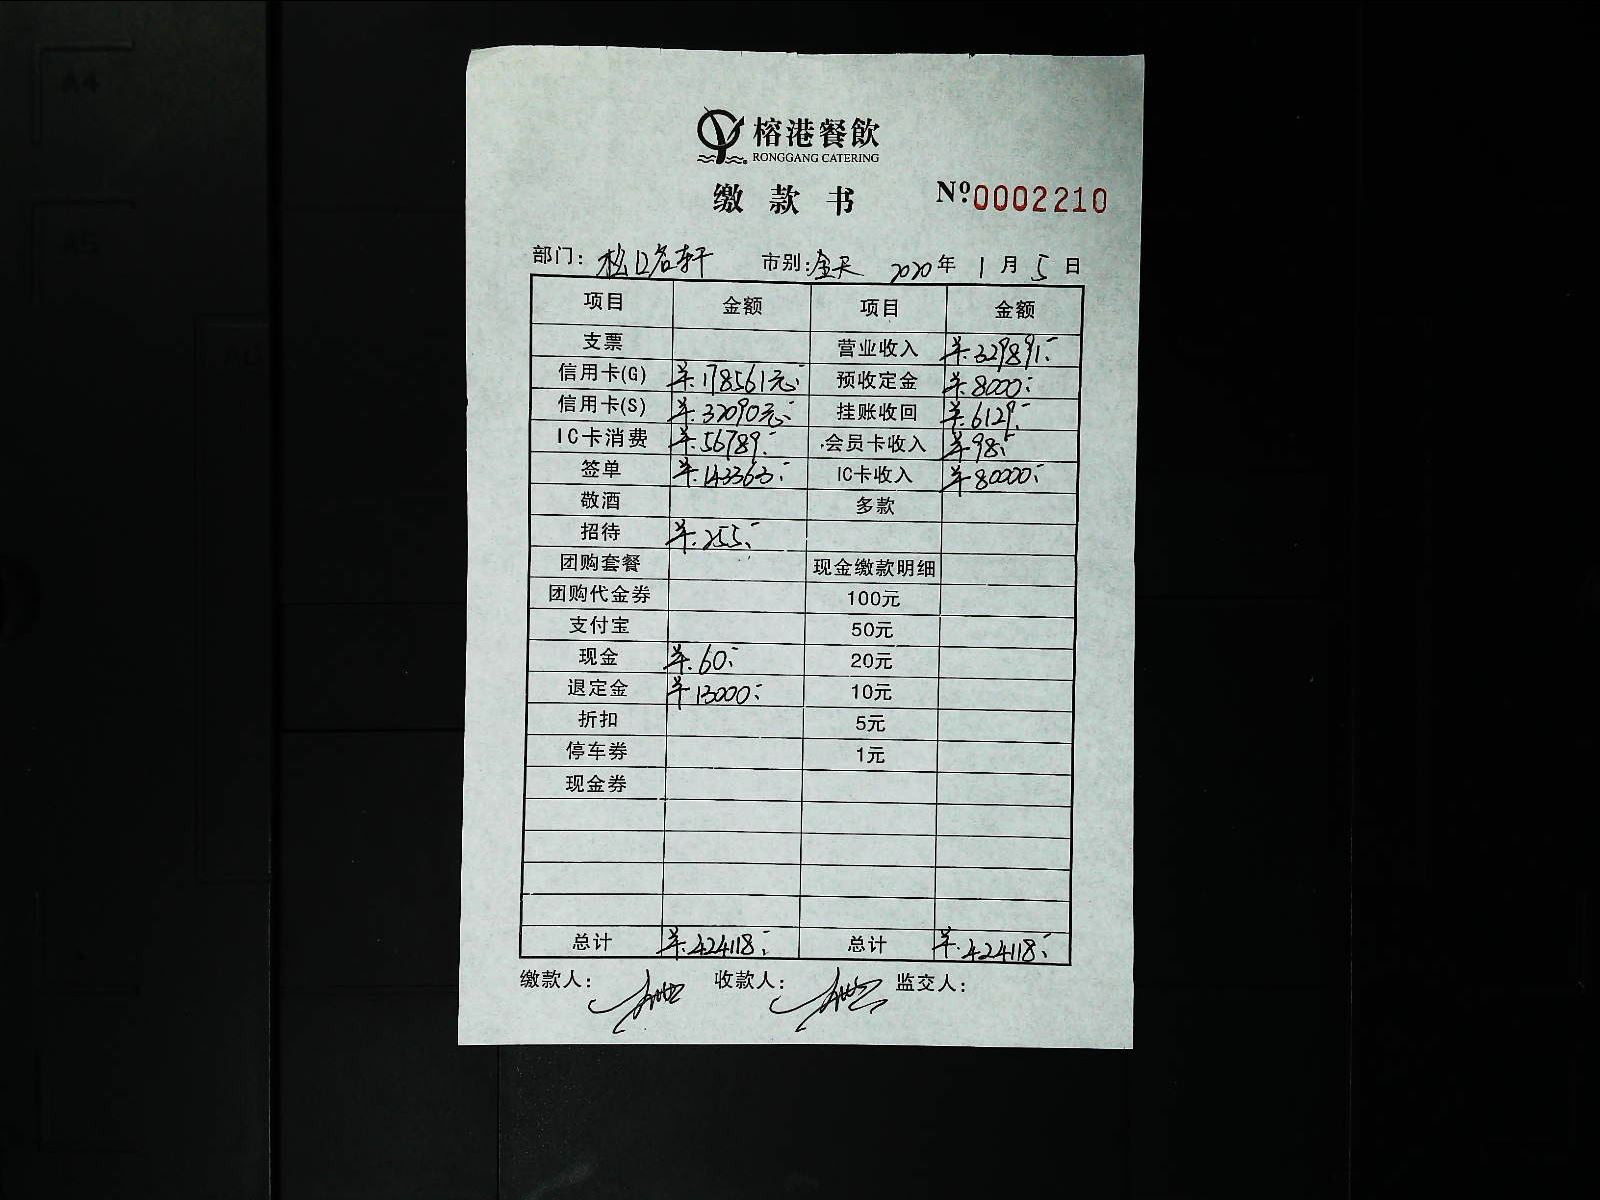 榕港餐飲
RONGGANG CATERING
缴款书 Nº 0002210
部门: 名轩 市别: 全天 2020年 1月 5日
项目 金额 项目 金额
支票 营业收入 ¥329891.-
信用卡(G) ¥178561元.- 预收定金 ¥8000.-
信用卡(S) ¥32090元.- 挂账收回 ¥6129.-
IC卡消费 ¥56789.- 会员卡收入 ¥98.-
签单 ¥143363.- IC卡收入 ¥80000.-
敬酒 多款
招待 ¥255.-
团购套餐 现金缴款明细
团购代金券 100元
支付宝 50元
现金 ¥60.- 20元
退定金 ¥13000.- 10元
折扣 5元
停车券 1元
现金券
总计 ¥424118.- 总计 ¥424118.-
缴款人: 收款人: 监交人:
A4
A5